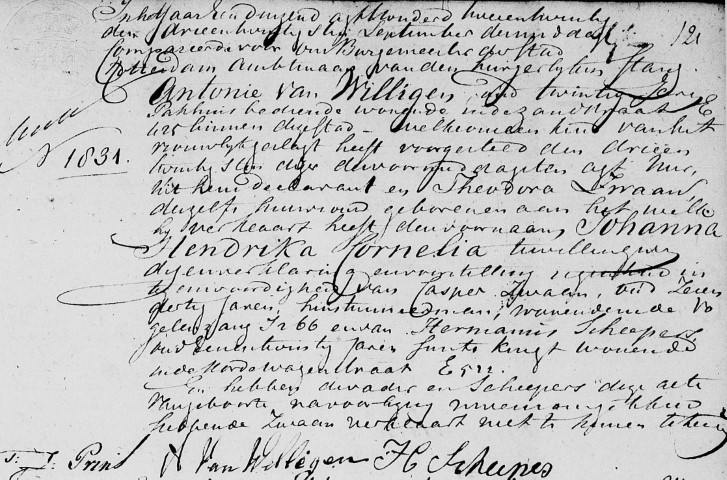 In het jaar een duizend acht honderd tweeentwintig
den drieentwintigsten September des middags 121
Compareerde voor ons Burgemeester der stad
Rotterdam Ambtenaar van den burgerlyken Stand.
Antonie van Willigen, oud twintig jaren
Pakhuis bediende wonende in de Zandstraat E
binnen deze stad welke ons een kind van het
vrouwelijk geslacht heeft voorgesteld den drieen
twintigsten dezer des voormiddags ten agt ure,
N 1831. uit hem declarant en Theodora Zwaan
deszelfs huisvrouw geboren en aan het welk
hy verklaart heeft de voornaam Johanna
Hendrika Cornelia te willen geven
deze verklaring en voorstelling in
tegenwoordigheid van Casper Zwaan, oud Zeven
dertig Jaren, huistimmerman, wonende in de
I 266 en van Hermanus Scheepers
oud eenentwintig Jaren knegt wonende
in de Noordswagenstraat E 522.
En hebben de vader en Scheepers deze acte
van geboorte na voorlezing met ons getekend
hebbende Zwaan verklaart niet te konnen tekenen
Prins A Van Willigen H Scheepers